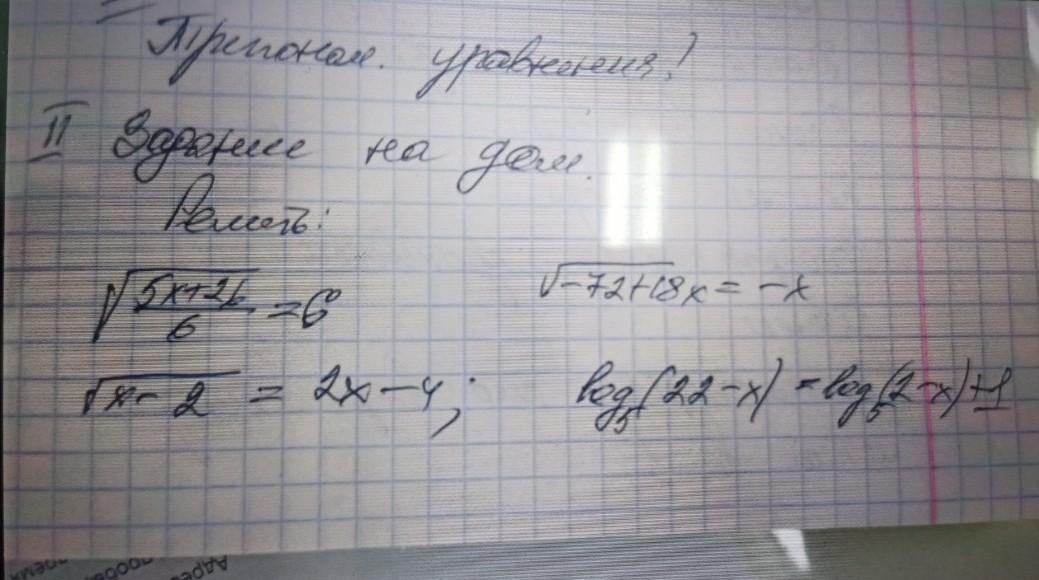 Тригоном. уравнения!
II Задание на дом.
Решить:
√(5x+26)/6 = 6
√-72+18x = -x
√x-2 = 2x-4;
log₅(22-x) = log₅(2-x)+1